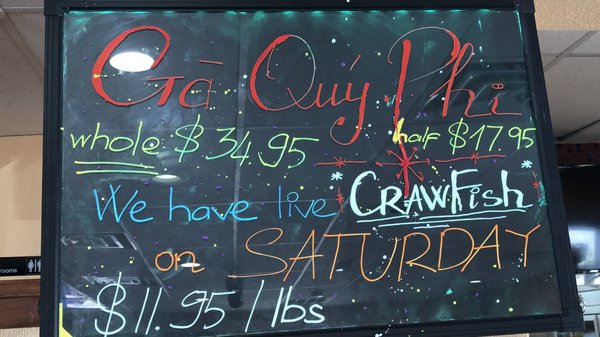 Gà Quý Phi
whole $34.95 half $17.95
We have live CRAWFish
on SATURDAY
$11.95/lbs
rooms